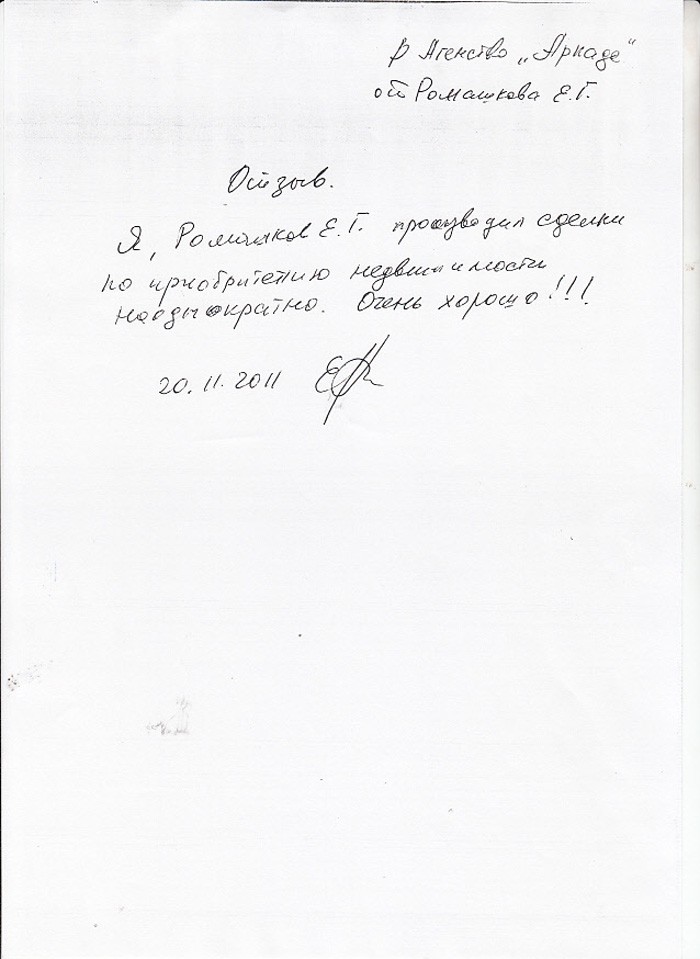 В Агенство „Аркаде"
от Ромашкова Е.Г.
Отзыв.
Я, Ромашков Е.Г. производил сделки
по приобритению недвижимости
наоднократно. Очень хорошо!!!
20.11.2011